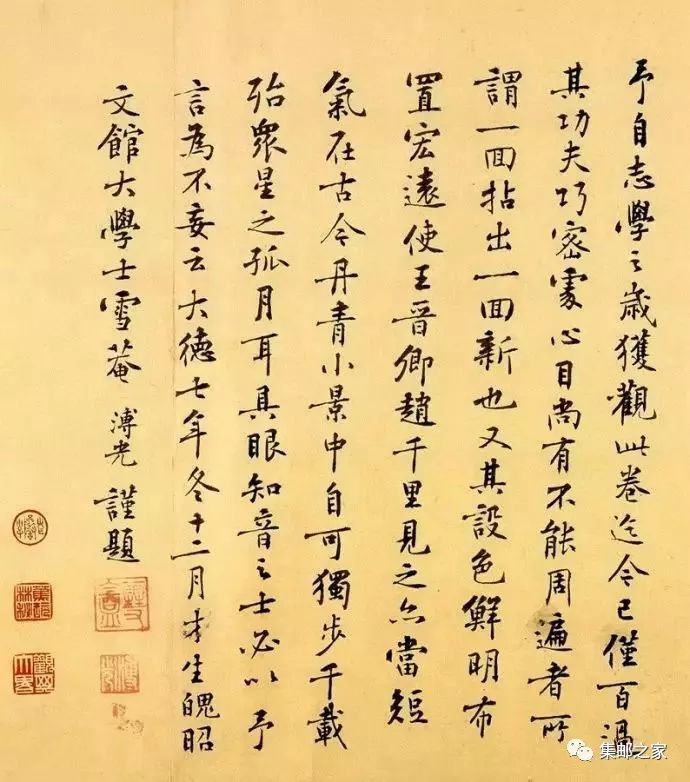 予自志學之歲獲觀此卷迄今已僅百過
其功夫巧密處心目尚有不能周遍者所
謂一回拈出一回新也又其設色鮮明布
置宏遠使王晉卿趙千里見之亦當短
氣在古今丹青小景中自可獨步千載
殆眾星之孤月耳具眼知音之士必以予
言為不妄云大德七年冬十二月才生魄昭
文館大學士雪菴溥光謹題
集邮之家